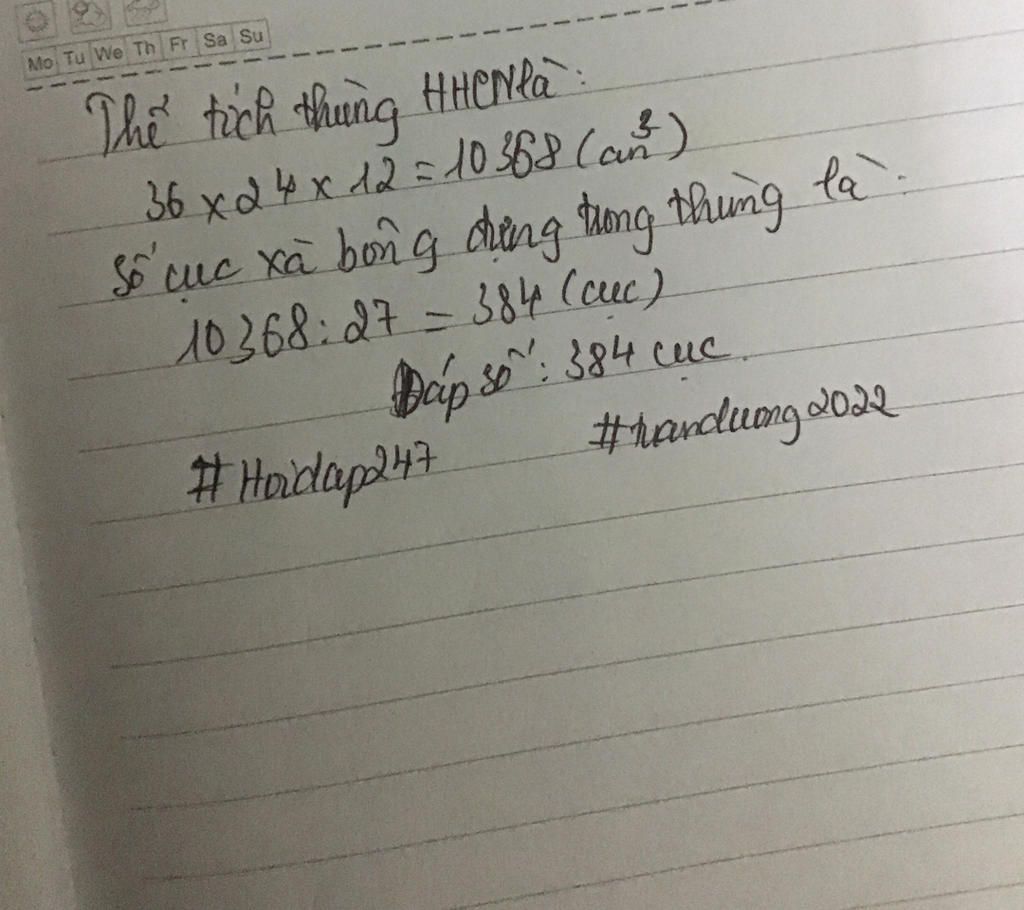 Mo Tu We Th Fr Sa Su
Thể tích thùng HHCN là:
36 x 24 x 12 = 10368 (cm³)
Số cục xà bông đựng trong thùng là:
10368 : 27 = 384 (cục)
Đáp số: 384 cục.
#Hoidap247 #tranduong2022